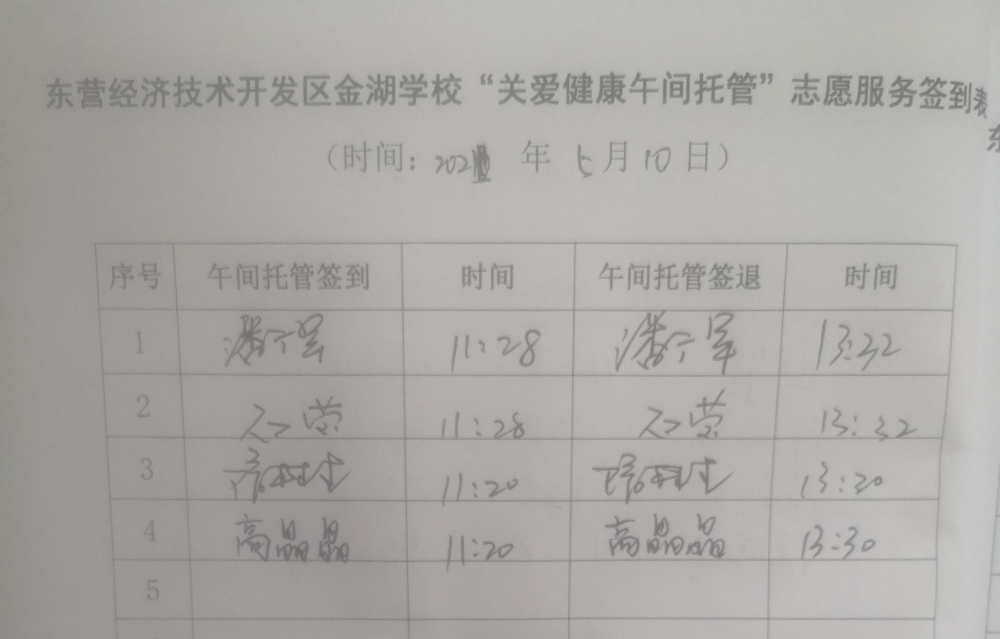 东营经济技术开发区金湖学校“关爱健康午间托管”志愿服务签到表
东
（时间：202 年 5月10日）
序号 午间托管签到 时间 午间托管签退 时间
1 11:28 13:32
2 11:28 13:32
3 11:20 13:30
4 高晶晶 11:20 高晶晶 13:30
5